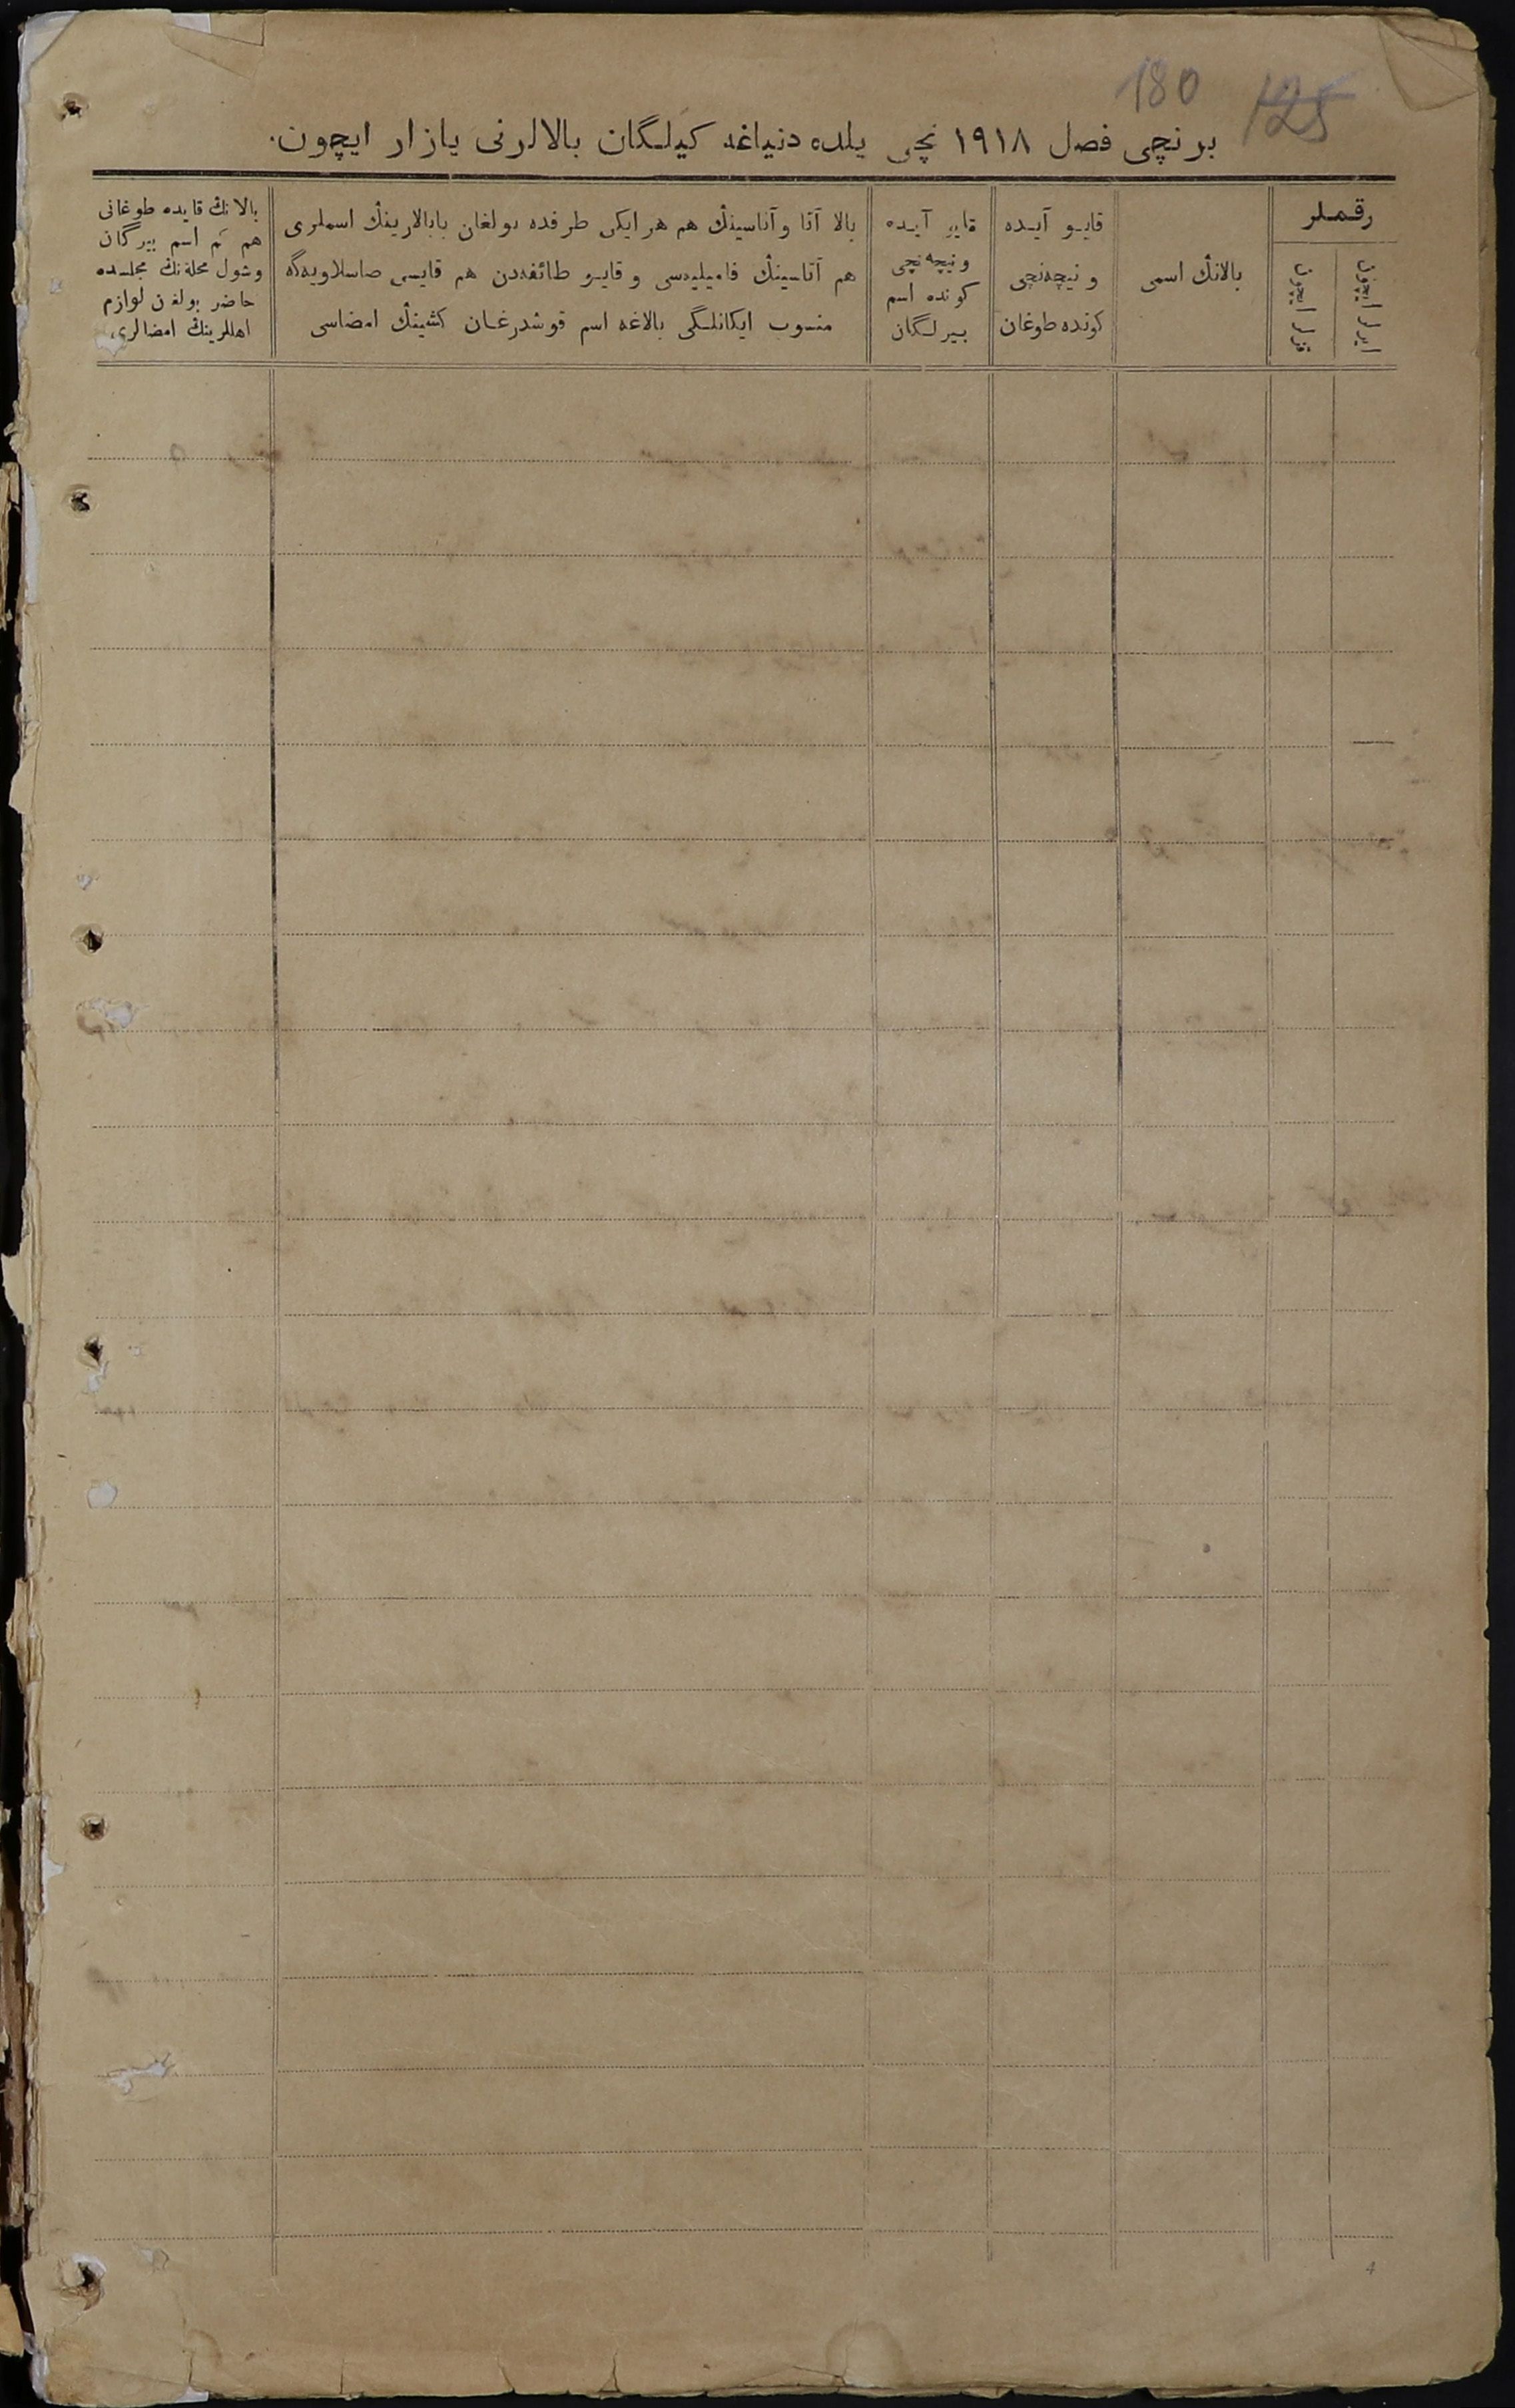 180 125
برنچی فصل ١٩١٨ نچی یلده دنیاغه کیلگان بالالرنی یازار ایچون.
رقملر
ایرلر ایچون
قزلر ایچون
بالانڭ اسمی
قایو آیده
و نیچه‌نچی
کونده طوغان
قایو آیده
و نیچه‌نچی
کونده اسم
بیرلگان
بالا آتا و آناسینڭ هم هر ایکی طرفده بولغان بابالارینڭ اسملری
هم آتاسینڭ فامیلیه‌سی و قایو طائفه‌دن هم قایسی صاسلاویه‌گه
منسوب ایکانلگی بالاغه اسم قوشدرغان کشینڭ امضاسی
بالانڭ قایده طوغانی
هم کم اسم بیرگان
و شول محله‌نڭ مجلسده
حاضر بولغن لوازم
اهللرینڭ امضالری
4